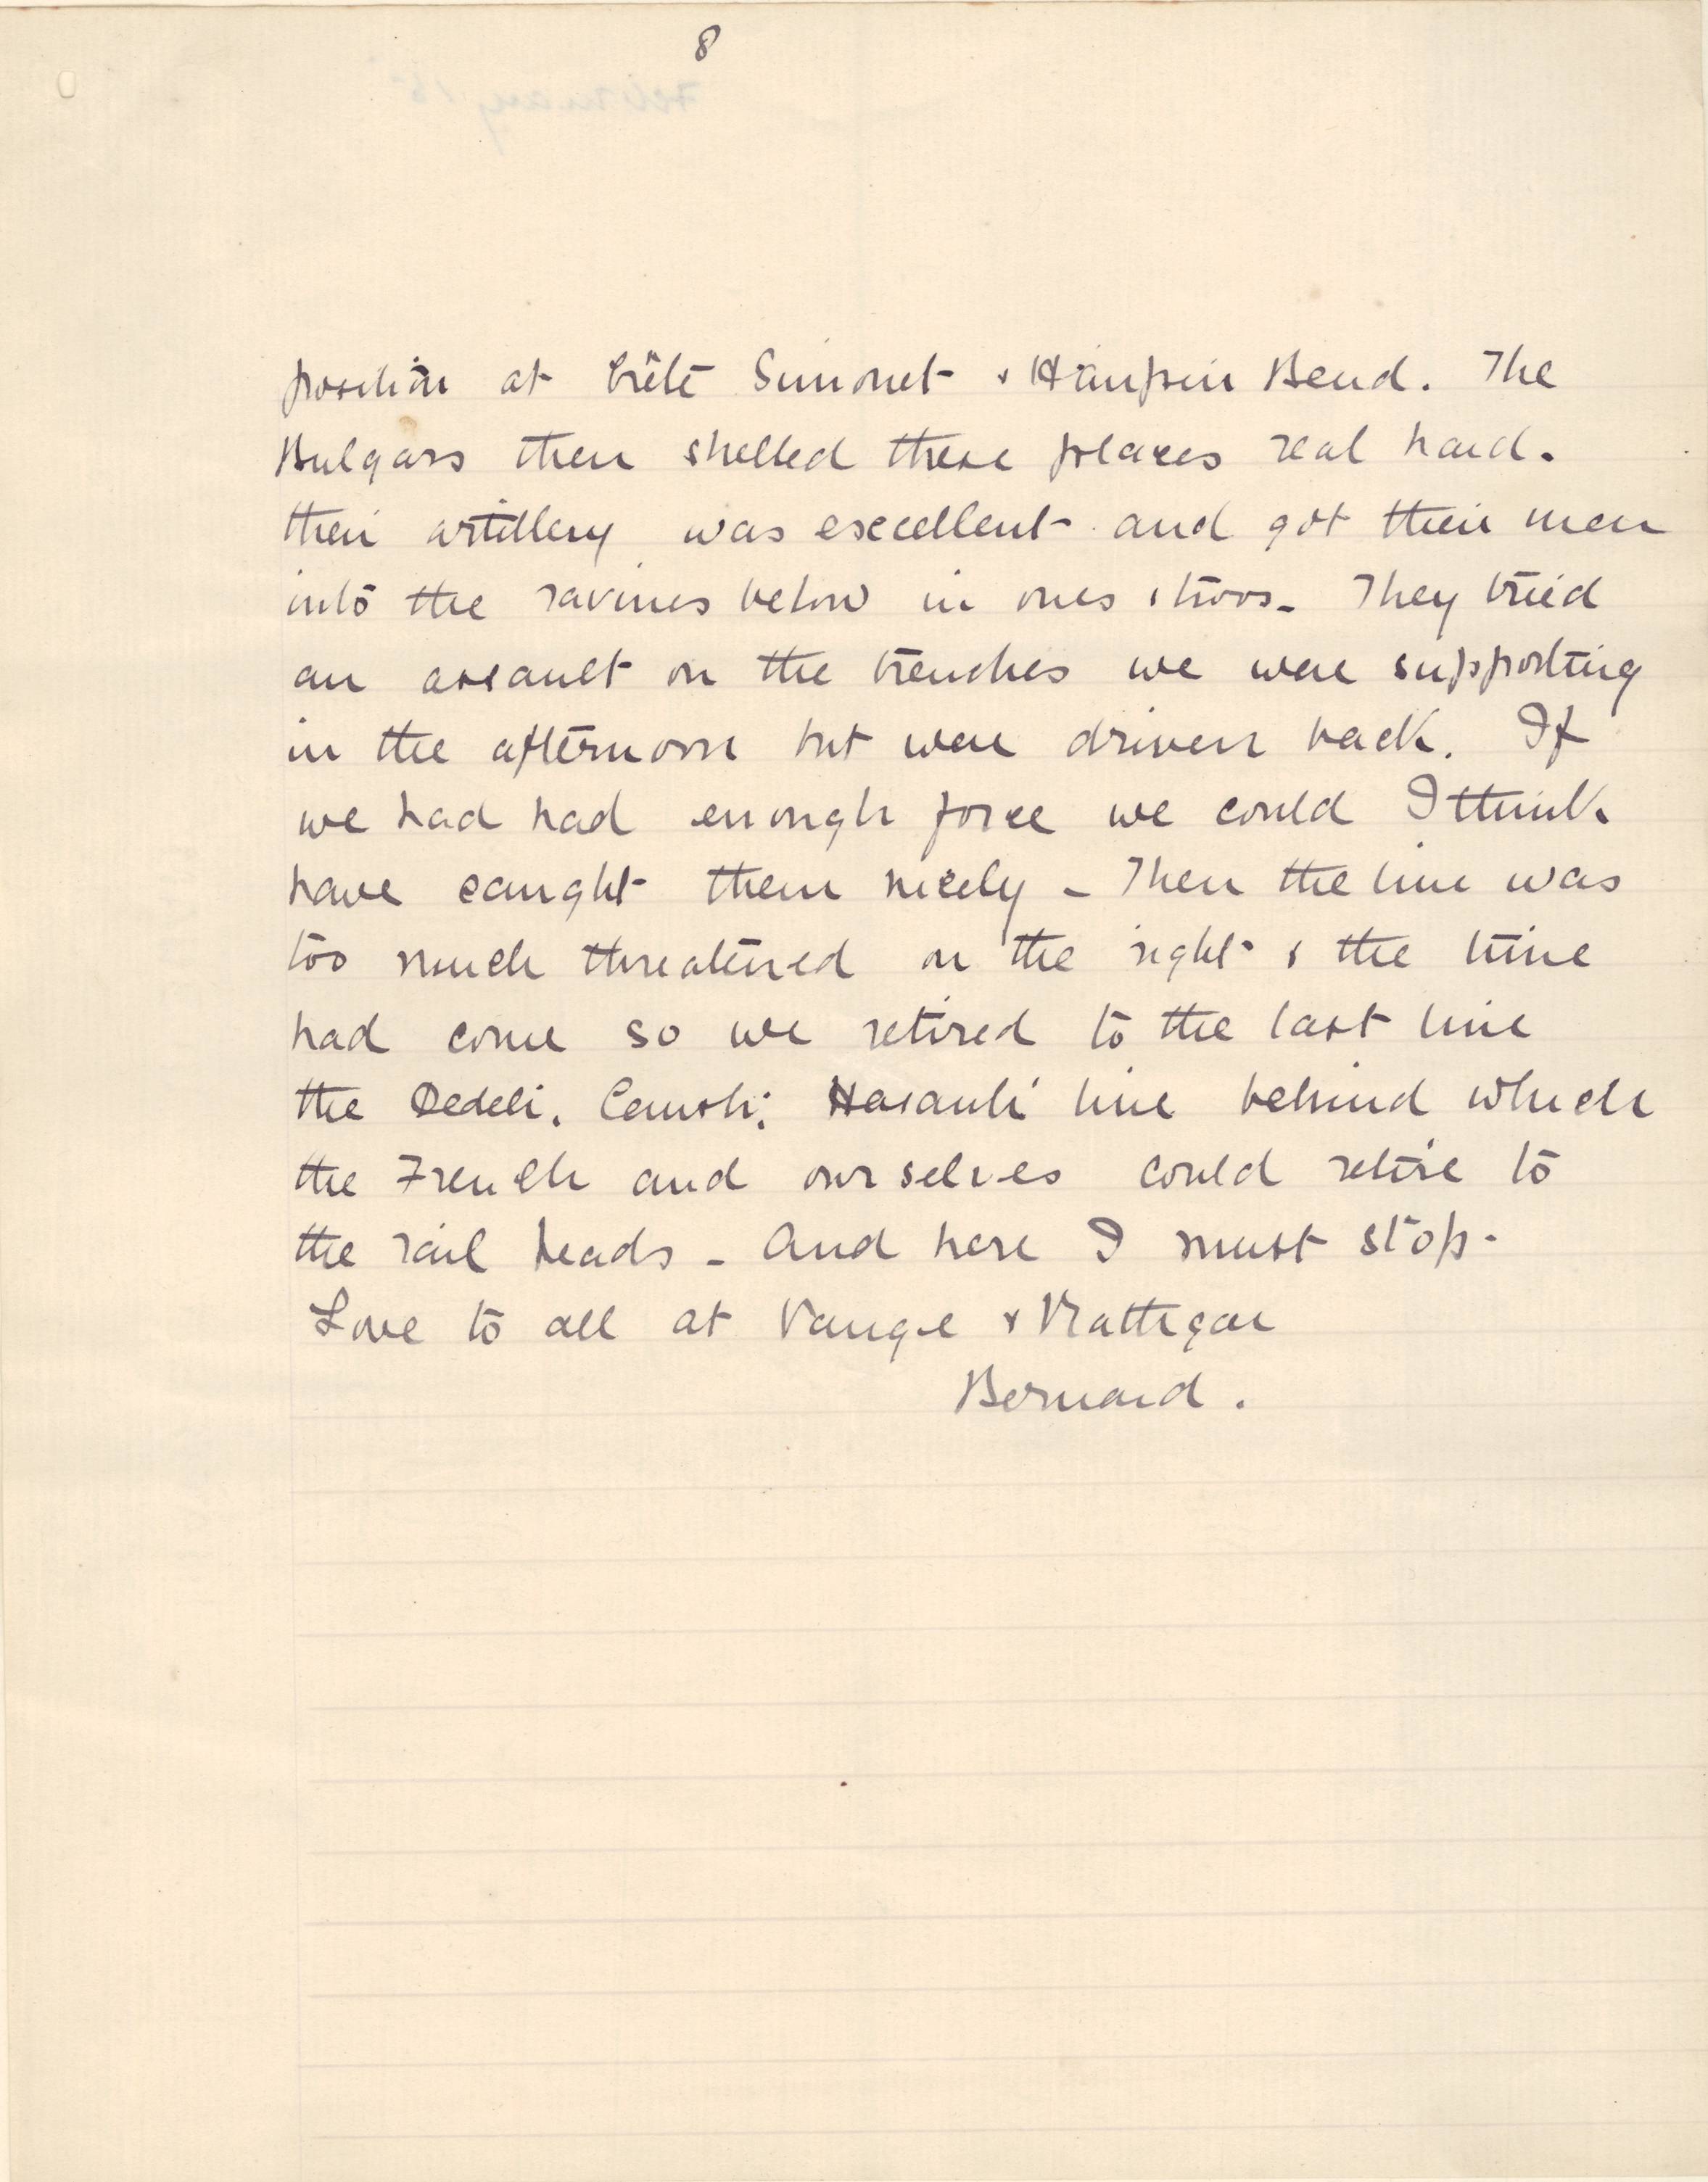 8
position at Crête Simonet & Hairpin Bend. The
Bulgars then shelled these places real hard.
their artillery was excellent and got their men
into the ravines below in ones & twos - They tried
an assault on the trenches we were supporting
in the afternoon but were driven back. If
we had had enough force we could I think
have caught them nicely - Then the line was
too much threatened on the right & the time
had come so we retired to the last line
the Dedeli, Causli; Hasanli line behind which
the French and ourselves could retire to
the rail heads - And here I must stop -
Love to all at Vange &
Bernard.